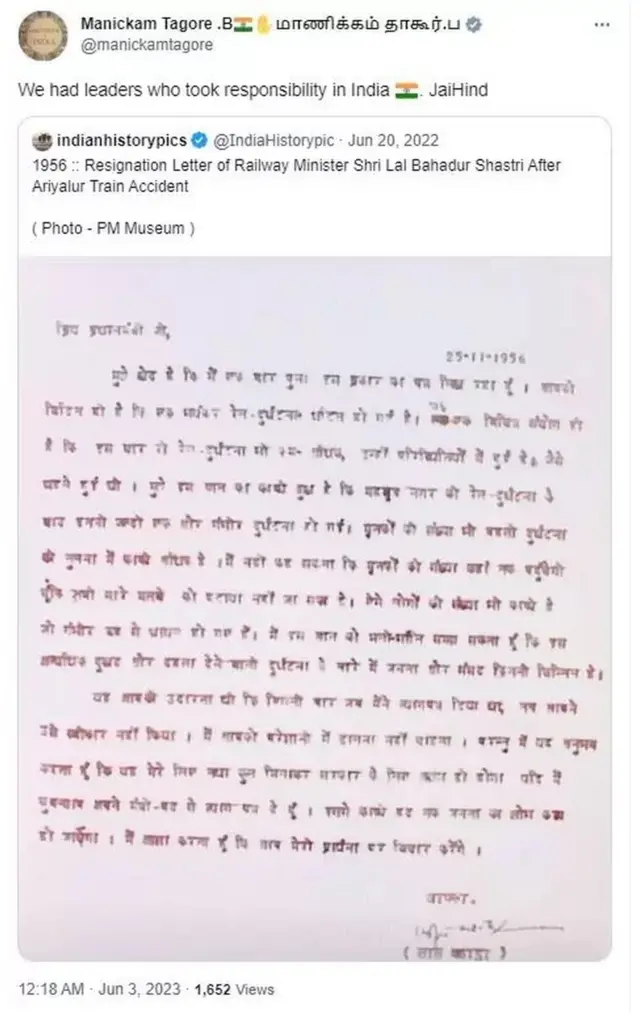 Manickam Tagore .B🇮🇳✋மாணிக்கம் தாகூர்.ப
@manickamtagore
We had leaders who took responsibility in India 🇮🇳. JaiHind
indianhistorypics @IndiaHistorypic · Jun 20, 2022
1956 :: Resignation Letter of Railway Minister Shri Lal Bahadur Shastri After
Ariyalur Train Accident
( Photo - PM Museum )
प्रिय प्रधानमंत्री जी,
25-11-1956
मुझे खेद है कि मैं एक बार पुनः इस प्रकार का पत्र लिख रहा हूँ । आपको
विदित ही है कि एक रेल-दुर्घटना घटित हो गई है। विचित्र संयोग ही
है कि इस बार भी रेल-दुर्घटना भी परिस्थितियों में हुई है। जैसे
पहले हुई थी । मुझे इस बात का काफी दुख है कि महबूब नगर की रेल-दुर्घटना के
बाद इतनी जल्दी एक और गंभीर दुर्घटना हो गई। मृतकों की संख्या भी पहली दुर्घटना
की तुलना में काफी अधिक है । मैं नहीं कह सकता कि मृतकों की संख्या कहाँ तक पहुँचेगी
चूँकि अभी सारे मलबे को हटाया नहीं जा सका है। ऐसे लोगों की संख्या भी काफी है
जो गंभीर रूप से घायल हो गए हैं। मैं इस बात को भली-भाँति समझ सकता हूँ कि इस
अत्यधिक दुखद और दहला देने वाली दुर्घटना के बारे में जनता और संसद कितनी चिन्तित है।
यह आपकी उदारता थी कि पिछली बार जब मैंने त्यागपत्र दिया था, तब आपने
उसे स्वीकार नहीं किया । मैं आपको परेशानी में डालना नहीं चाहता । परन्तु मैं यह अनुभव
करता हूँ कि यह मेरे लिए तथा कुल मिलाकर सरकार के लिए अच्छा ही होगा यदि मैं
चुपचाप अपने मंत्री-पद से त्याग पत्र दे दूँ । इससे काफी हद तक जनता का क्षोभ कम
हो जाएगा । मैं आशा करता हूँ कि आप मेरी प्रार्थना पर विचार करेंगे ।
आपका,
12:18 AM · Jun 3, 2023 · 1,652 Views